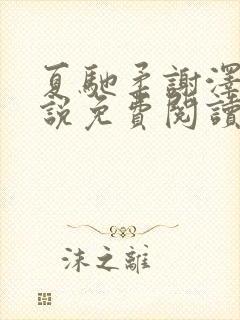 夏馳柔謝澤
説免費閱讀
沫之離